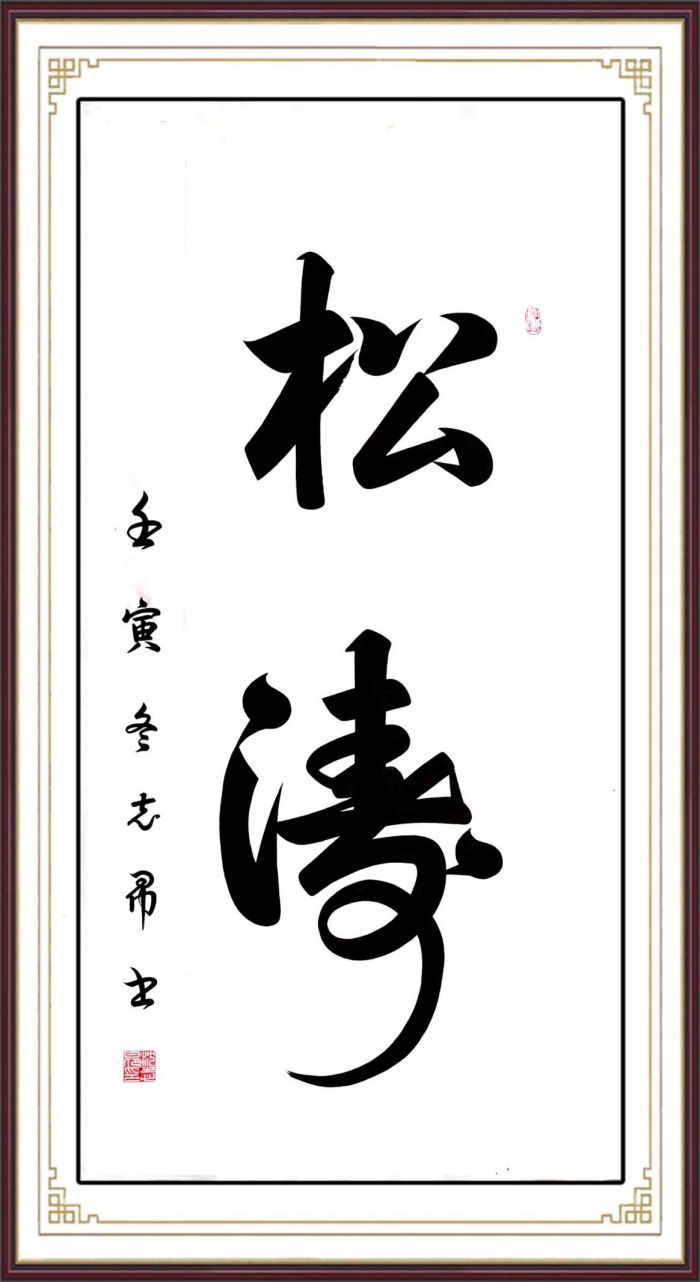 松涛
壬寅冬志昂书